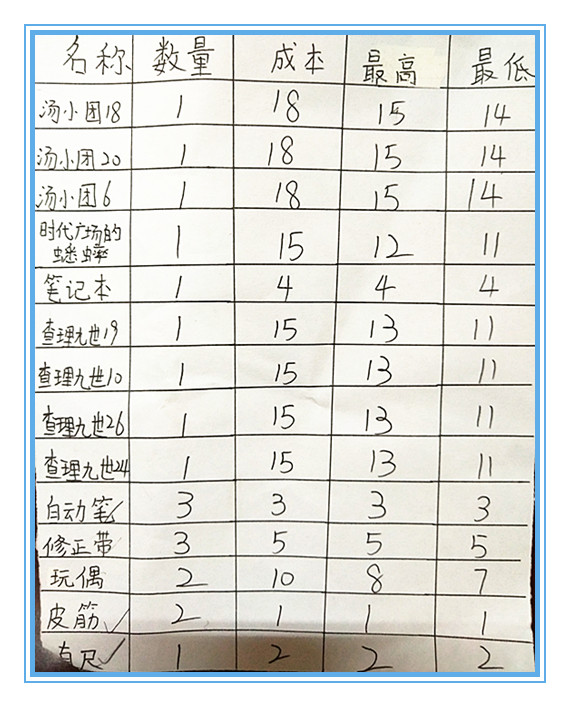 名称 数量 成本 最高 最低
汤小团18 1 18 15 14
汤小团20 1 18 15 14
汤小团6 1 18 15 14
时代广场的
蟋蟀 1 15 12 11
笔记本 1 4 4 4
查理九世19 1 15 13 11
查理九世10 1 15 13 11
查理九世26 1 15 13 11
查理九世24 1 15 13 11
自动笔✓ 3 3 3 3
修正带 3 5 5 5
玩偶 2 10 8 7
皮筋✓ 2 1 1 1
直尺✓ 1 2 2 2